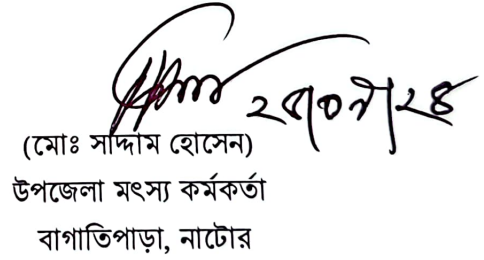 ২৫|০৭|২৪
(মোঃ সাদ্দাম হোসেন)
উপজেলা মৎস্য কর্মকর্তা
বাগাতিপাড়া, নাটোর